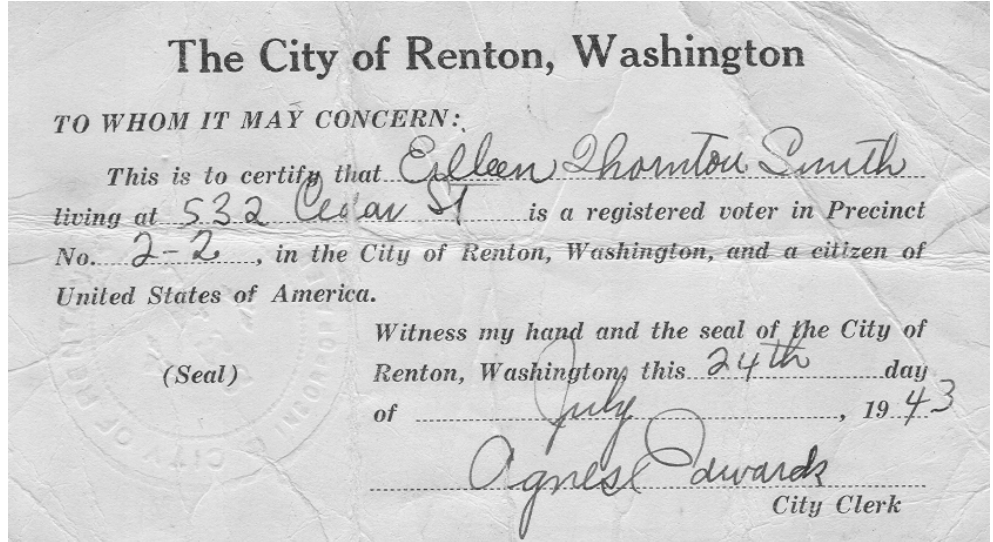 The City of Renton, Washington
TO WHOM IT MAY CONCERN:
This is to certify that Eileen Thornton Smith
living at 532 Cedar St is a registered voter in Precinct
No. 2-2, in the City of Renton, Washington, and a citizen of
United States of America.
Witness my hand and the seal of the City of
(Seal) Renton, Washington, this 24th day
of July, 1943
Agnes Edwards
City Clerk
CITY OF RENTON